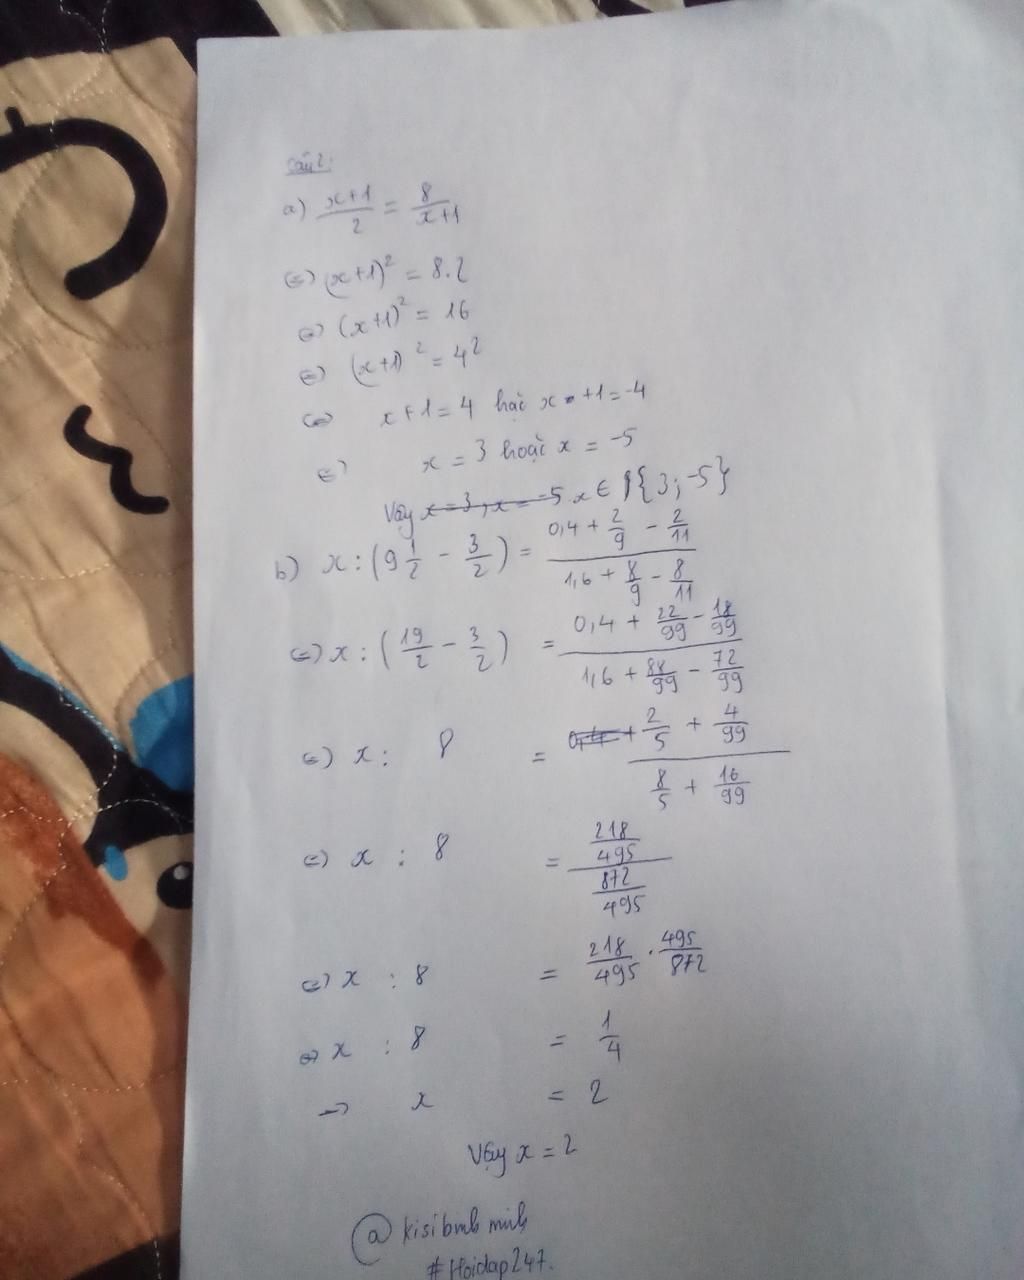 Câu 2:
a) \frac{x+1}{2} = \frac{8}{x+1}
(=) (x+1)² = 8.2
(=) (x+1)² = 16
(=) (x+1)² = 4²
(=) x+1 = 4 hặc x +1 = -4
(=) x = 3 hoặc x = -5
Vậy x = 3, x = -5 x ∈ {3; -5}
b) x : (9\frac{1}{2} - \frac{3}{2}) = \frac{0,4 + \frac{2}{9} - \frac{2}{11}}{1,6 + \frac{8}{9} - \frac{8}{11}}
(=) x : (\frac{19}{2} - \frac{3}{2}) = \frac{0,4 + \frac{22}{99} - \frac{18}{99}}{1,6 + \frac{88}{99} - \frac{72}{99}}
(=) x : 8 = \frac{\frac{2}{5} + \frac{4}{99}}{\frac{8}{5} + \frac{16}{99}}
(=) x : 8 = \frac{\frac{218}{495}}{\frac{872}{495}}
(=) x : 8 = \frac{218}{495} . \frac{495}{872}
(=) x : 8 = \frac{1}{4}
=) x = 2
Vậy x = 2
@ kisibmb
#Hoidap247.